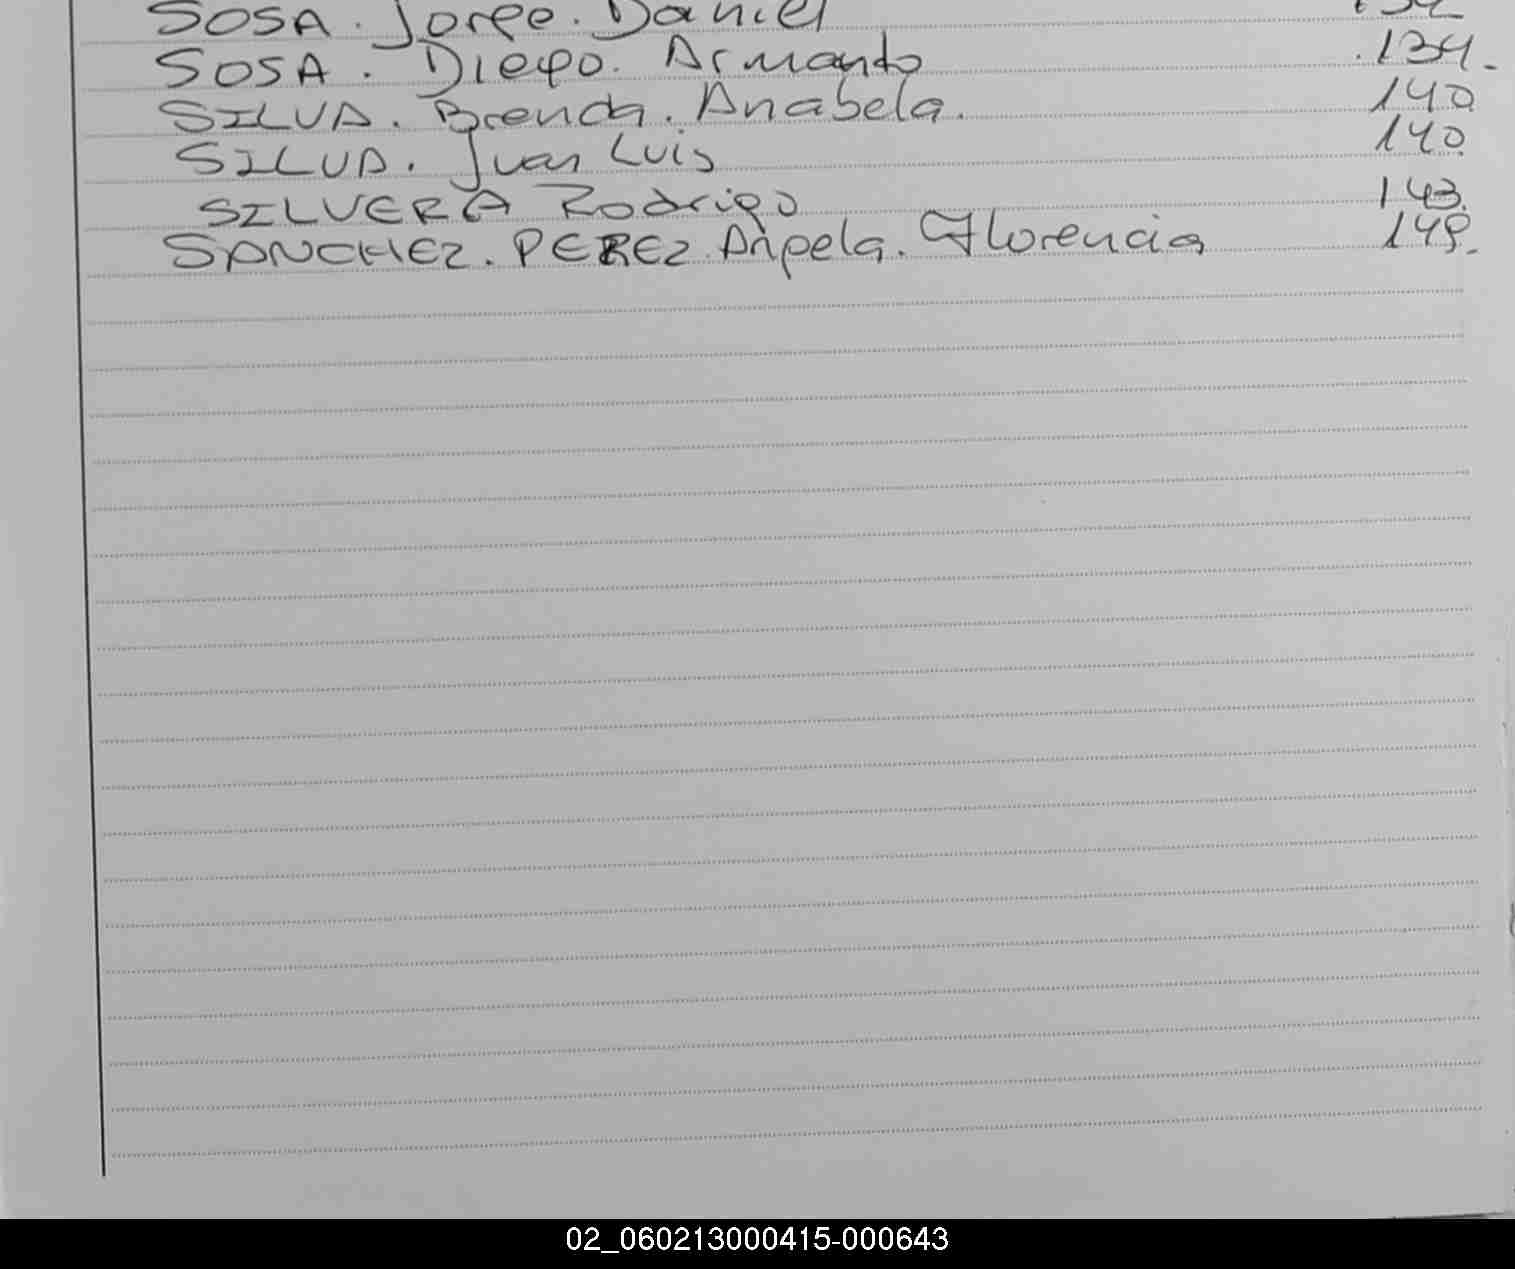 SOSA. Jorge. Daniel
SOSA. Diego. Armando 134.
SILVA. Brenda. Anabela. 140
SILVA. Juan Luis 140
SILVERA Rodrigo 143.
SANCHEZ. PEREZ. Angela. Florencia 149.
02_060213000415-000643